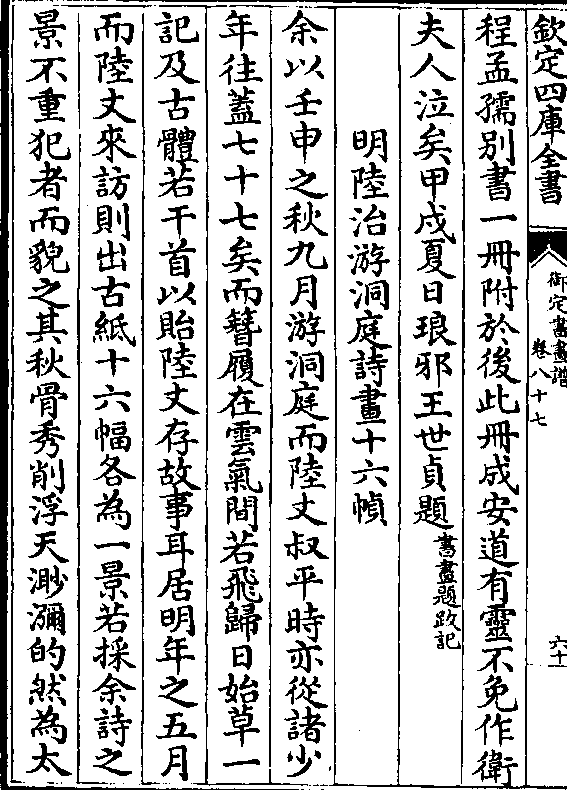 欽定四庫全書
御定書畫譜
卷八十七
六十
程孟孺别書一冊附於後此冊成安道有靈不免作衛
夫人泣矣甲戌夏日琅邪王世貞題書畫題跋記
明陸治游洞庭詩畫十六幀
余以壬申之秋九月游洞庭而陸丈叔平時亦從諸少
年往蓋七十七矣而簪履在雲氣間若飛歸日始草一
記及古體若干首以貽陸丈存故事耳居明年之五月
而陸丈來訪則出古紙十六幅各為一景若採余詩之
景不重犯者而貌之其秋骨秀削浮天渺瀰的然為太